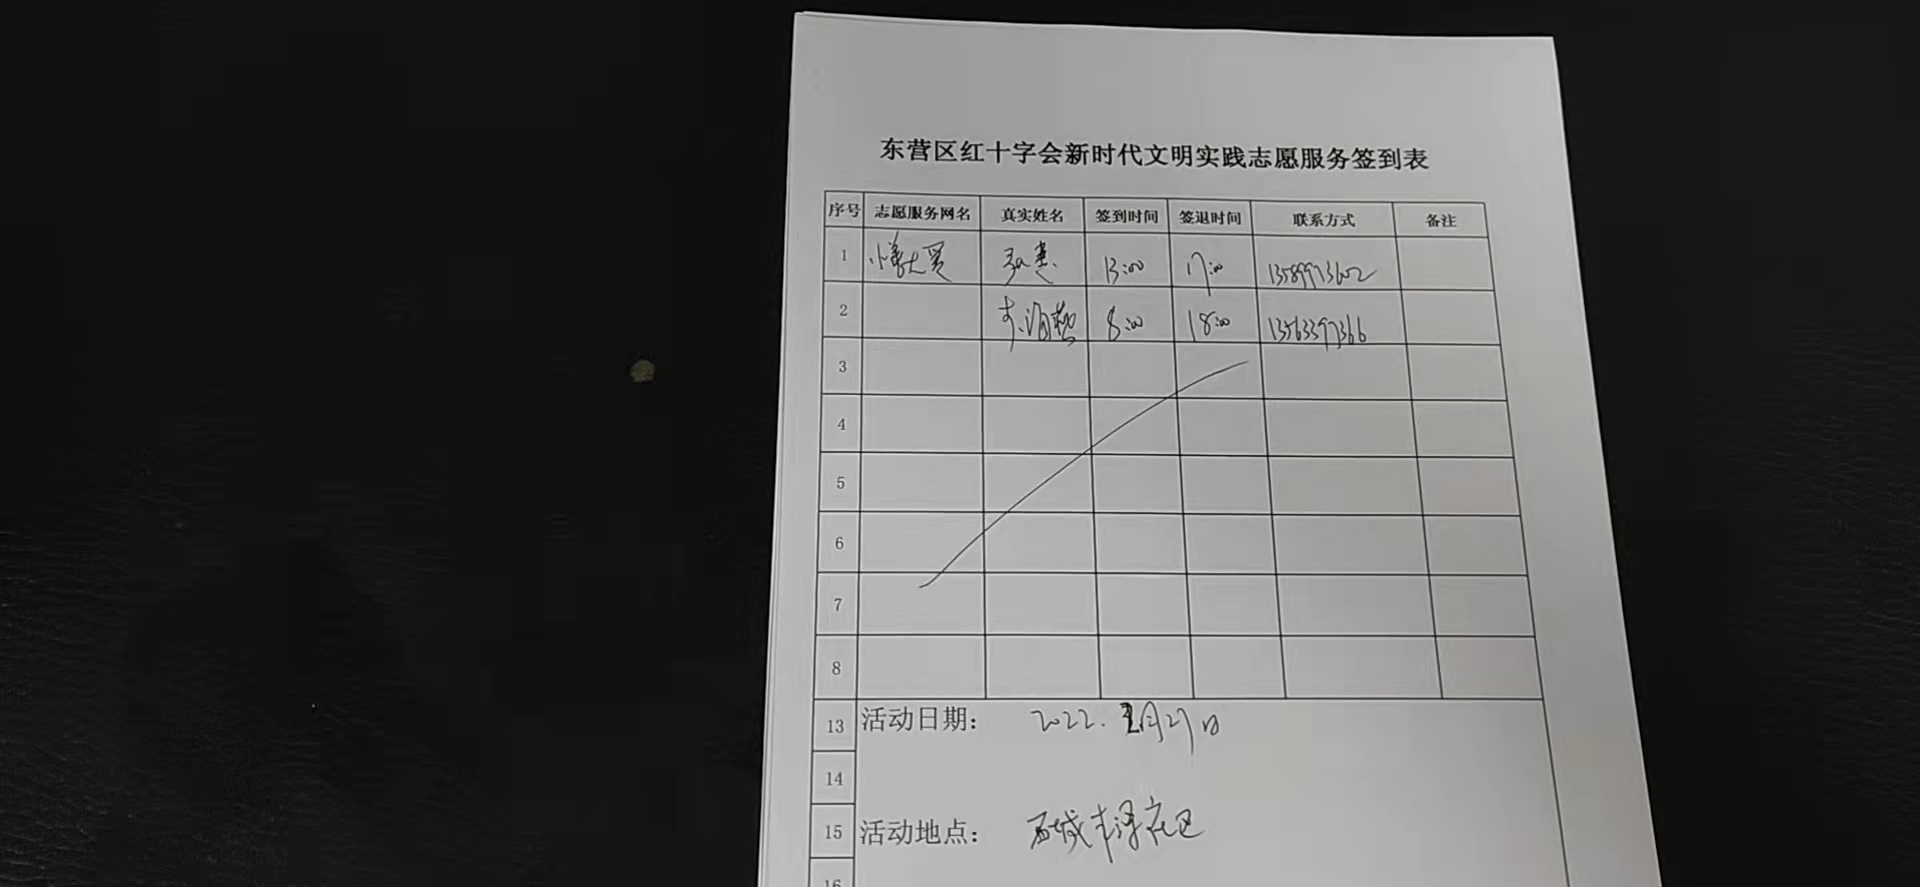 东营区红十字会新时代文明实践志愿服务签到表
序号 志愿服务网名 真实姓名 签到时间 签退时间 联系方式 备注
1 13:00 17:00 13589973602
2 8:00 18:00 13563397366
3
4
5
6
7
8
13 活动日期: 2022. 月27日
14
15 活动地点: 西城丰泽花区
16